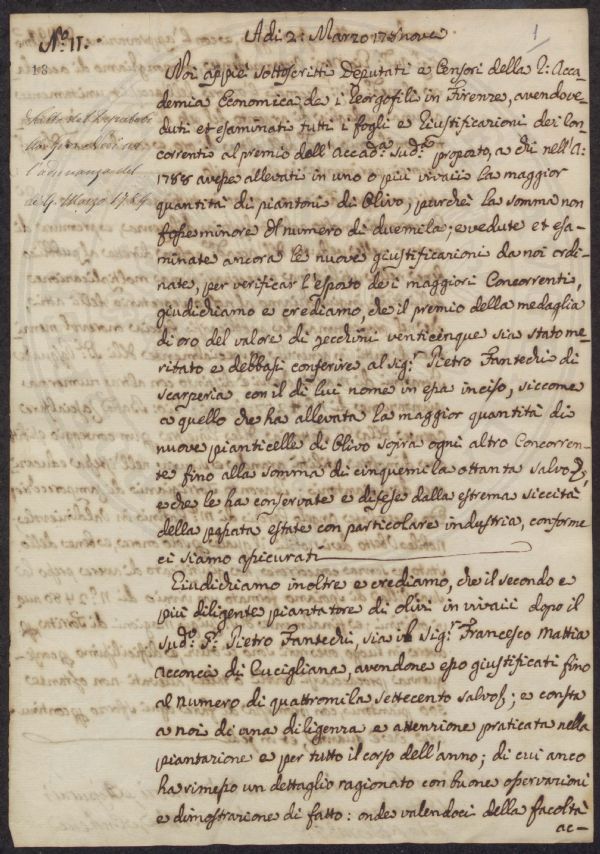 N.º 11.
Adi 2: Marzo 178nove
1
18
Noi appiè sottoscritti Deputati e Censori della R: Acca-
demia Economica de i Georgofili in Firenze, avendo ve-
duti et esaminati tutti i fogli e Giustificazioni dei Con-
correnti al premio dell'Accad.ª sud.ª proposto, a chi nell'A:
1788 avesse allevati in uno o più vivaii la maggior
quantità di piantoni di Olivo, purchè la somma non
fosse minore del numero di duemila; e vedute et esa-
minate ancora le nuove giustificazioni da noi ordi-
nate, per verificar l'esposto de i maggiori Concorrenti,
giudichiamo e crediamo, che il premio della medaglia
di oro del valore di zecchini venticinque sia stato me-
ritato e debbasi conferire al Sig.r Pietro Fantechi di
Scarperia con il di lui nome in essa inciso, siccome
a quello che ha allevata la maggior quantità di
nuove pianticelle di Olivo sopra ogni altro Concorren-
te fino alla somma di cinquemila ottanta salvo;
e che le ha conservate e difese dalla estrema siccità
della passata estate con particolare industria, conforme
ci siamo assicurati
Giudichiamo inoltre e crediamo, che il secondo e
più diligente piantatore di olivi in vivaii dopo il
sud.º S.r Pietro Fantechi, sia il Sig.r Francesco Mattia
Acconci di Cucigliana, avendone esso giustificati fino
al numero di quattromila settecento salvo; e consta
a noi di una diligenza e attenzione praticata nella
piantazione e per tutto il corso dell'anno; di cui anco
ha rimesso un dettaglio ragionato con buone osservazioni
e dimostrazione di fatto: onde valendoci della facoltà
ac-
Letto dal
l'adunanza del
dì 4. Marzo 1789